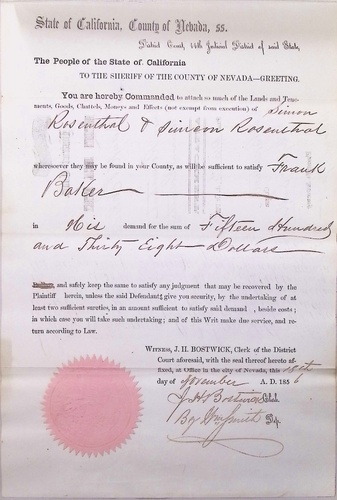 State of California, County of Nevada, ss.
District Court, 14th Judicial District of said State,
The People of the State of California
TO THE SHERIFF OF THE COUNTY OF NEVADA—GREETING.
You are hereby Commanded to attach so much of the Lands and Tene-
ments, Goods, Chattels, Moneys and Effects (not exempt from execution) of Simon
Rosenthal & Simeon Rosenthal
wheresoever they may be found in your County, as will be sufficient to satisfy Frank
Baker
in His demand for the sum of Fifteen Hundred
and Thirty Eight Dollars
and safely keep the same to satisfy any judgment that may be recovered by the
Plaintiff herein, unless the said Defendant give you security, by the undertaking of at
least two sufficient sureties, in an amount sufficient to satisfy said demand, beside costs;
in which case you will take such undertaking; and of this Writ make due service, and re-
turn according to Law.
WITNESS, J. H. BOSTWICK, Clerk of the District
Court aforesaid, with the seal thereof hereto af-
fixed, at Office in the city of Nevada, this 18th
day of November A. D. 1856
J H Bostwick Clerk.
By Wm Smith Dep.